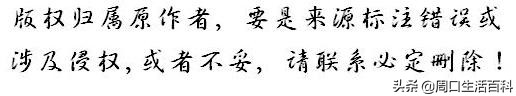 版权归属原作者，要是来源标注错误或
涉及侵权，或者不妥，请联系必定删除！
头条@周口生活百科